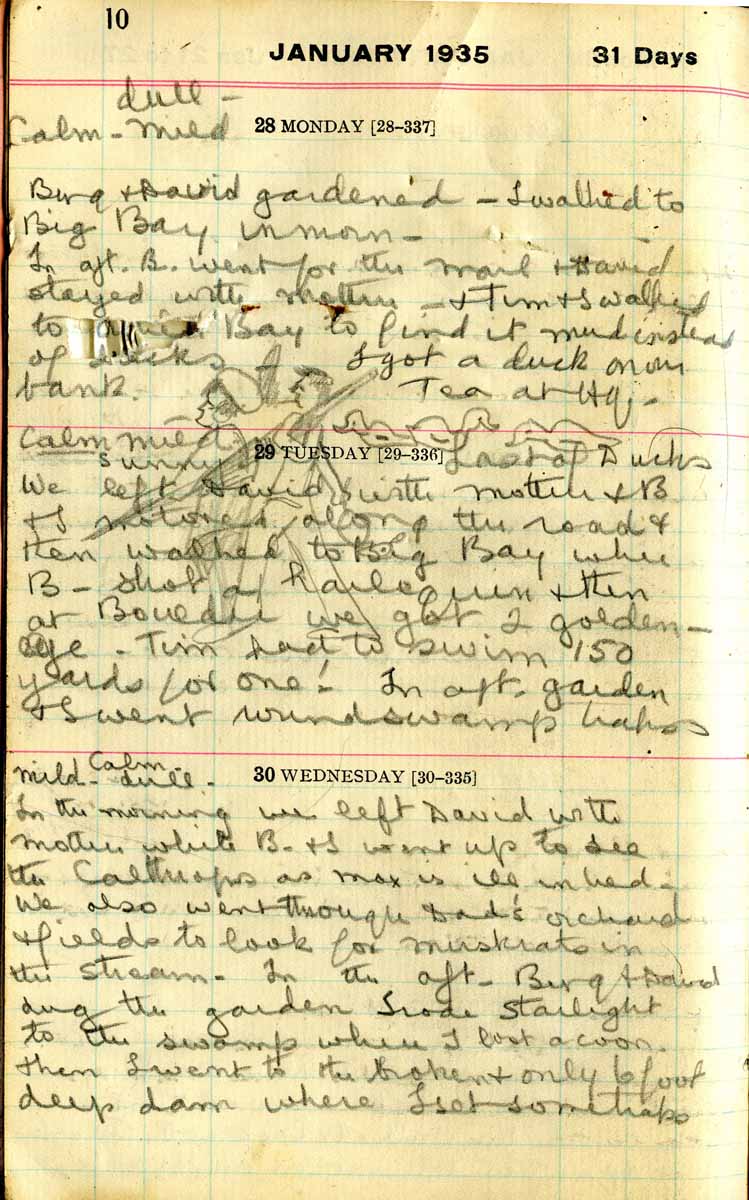 10
JANUARY 1935 31 Days
dull -
Calm - mild 28 MONDAY [28–337]
Berg & David gardened - I walked to
Big Bay in morn -
In aft. B. went for the mail & David
stayed with mother - & Tim & I walked
to Bay to find it mud instead
of ducks - I got a duck on our
bank. Tea at HQ. -
Calm mild
sunny 29 TUESDAY [29–336] Last of Ducks
We left David with mother & B
& I motored along the road &
then walked to Big Bay where
B - shot a harlequin & then
at we got 2 golden-
eye. Tim had to swim 150
yards for one! In aft. garden
& I went round swamp traps
Calm -
mild - dull - 30 WEDNESDAY [30–335]
In the morning we left David with
mother while B. & I went up to see
the Calthrops as Max is ill in bed -
We also went through Dad's orchard
& fields to look for muskrats in
the stream - In the aft - Berg & David
dug the garden I rode Starlight
to the swamp where I lost a coon.
Then I went to the broken & only 6 foot
deep dam where I set some traps